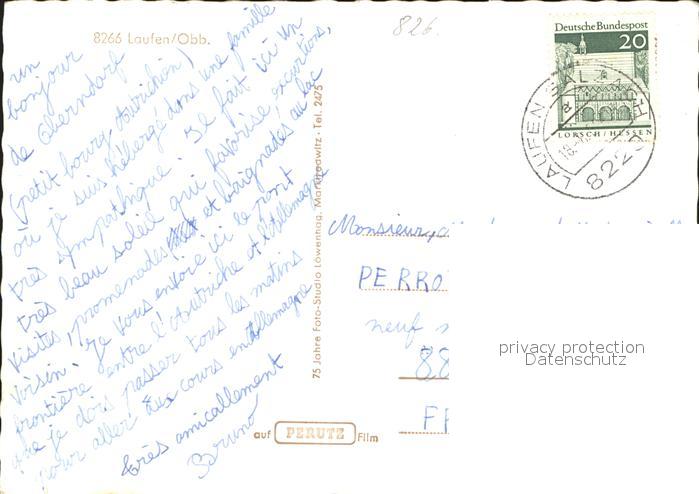 8266 Laufen/Obb.
826.
un
bonjour
de Oberndorf
(petit bourg Autrichien)
où je suis hébergé dans une famille
très sympathique. Il fait ici un
très beau soleil qui favorise excursions,
visites, promenades et baignades au lac
voisin. Je vous envoie ici le pont
frontière entre l'Autriche et l'Allemagne
que je dois passer tous les matins
pour aller aux cours en Allemagne
très amicallement
Bruno
75 Jahre Foto-Studio Löwenhag, Marktredwitz · Tel. 2475
auf PERUTZ Film
Deutsche Bundespost
20
LORSCH/HESSEN
LAUFEN
8229
Monsieur
PERRO
neuf
88
F
privacy protection
Datenschutz